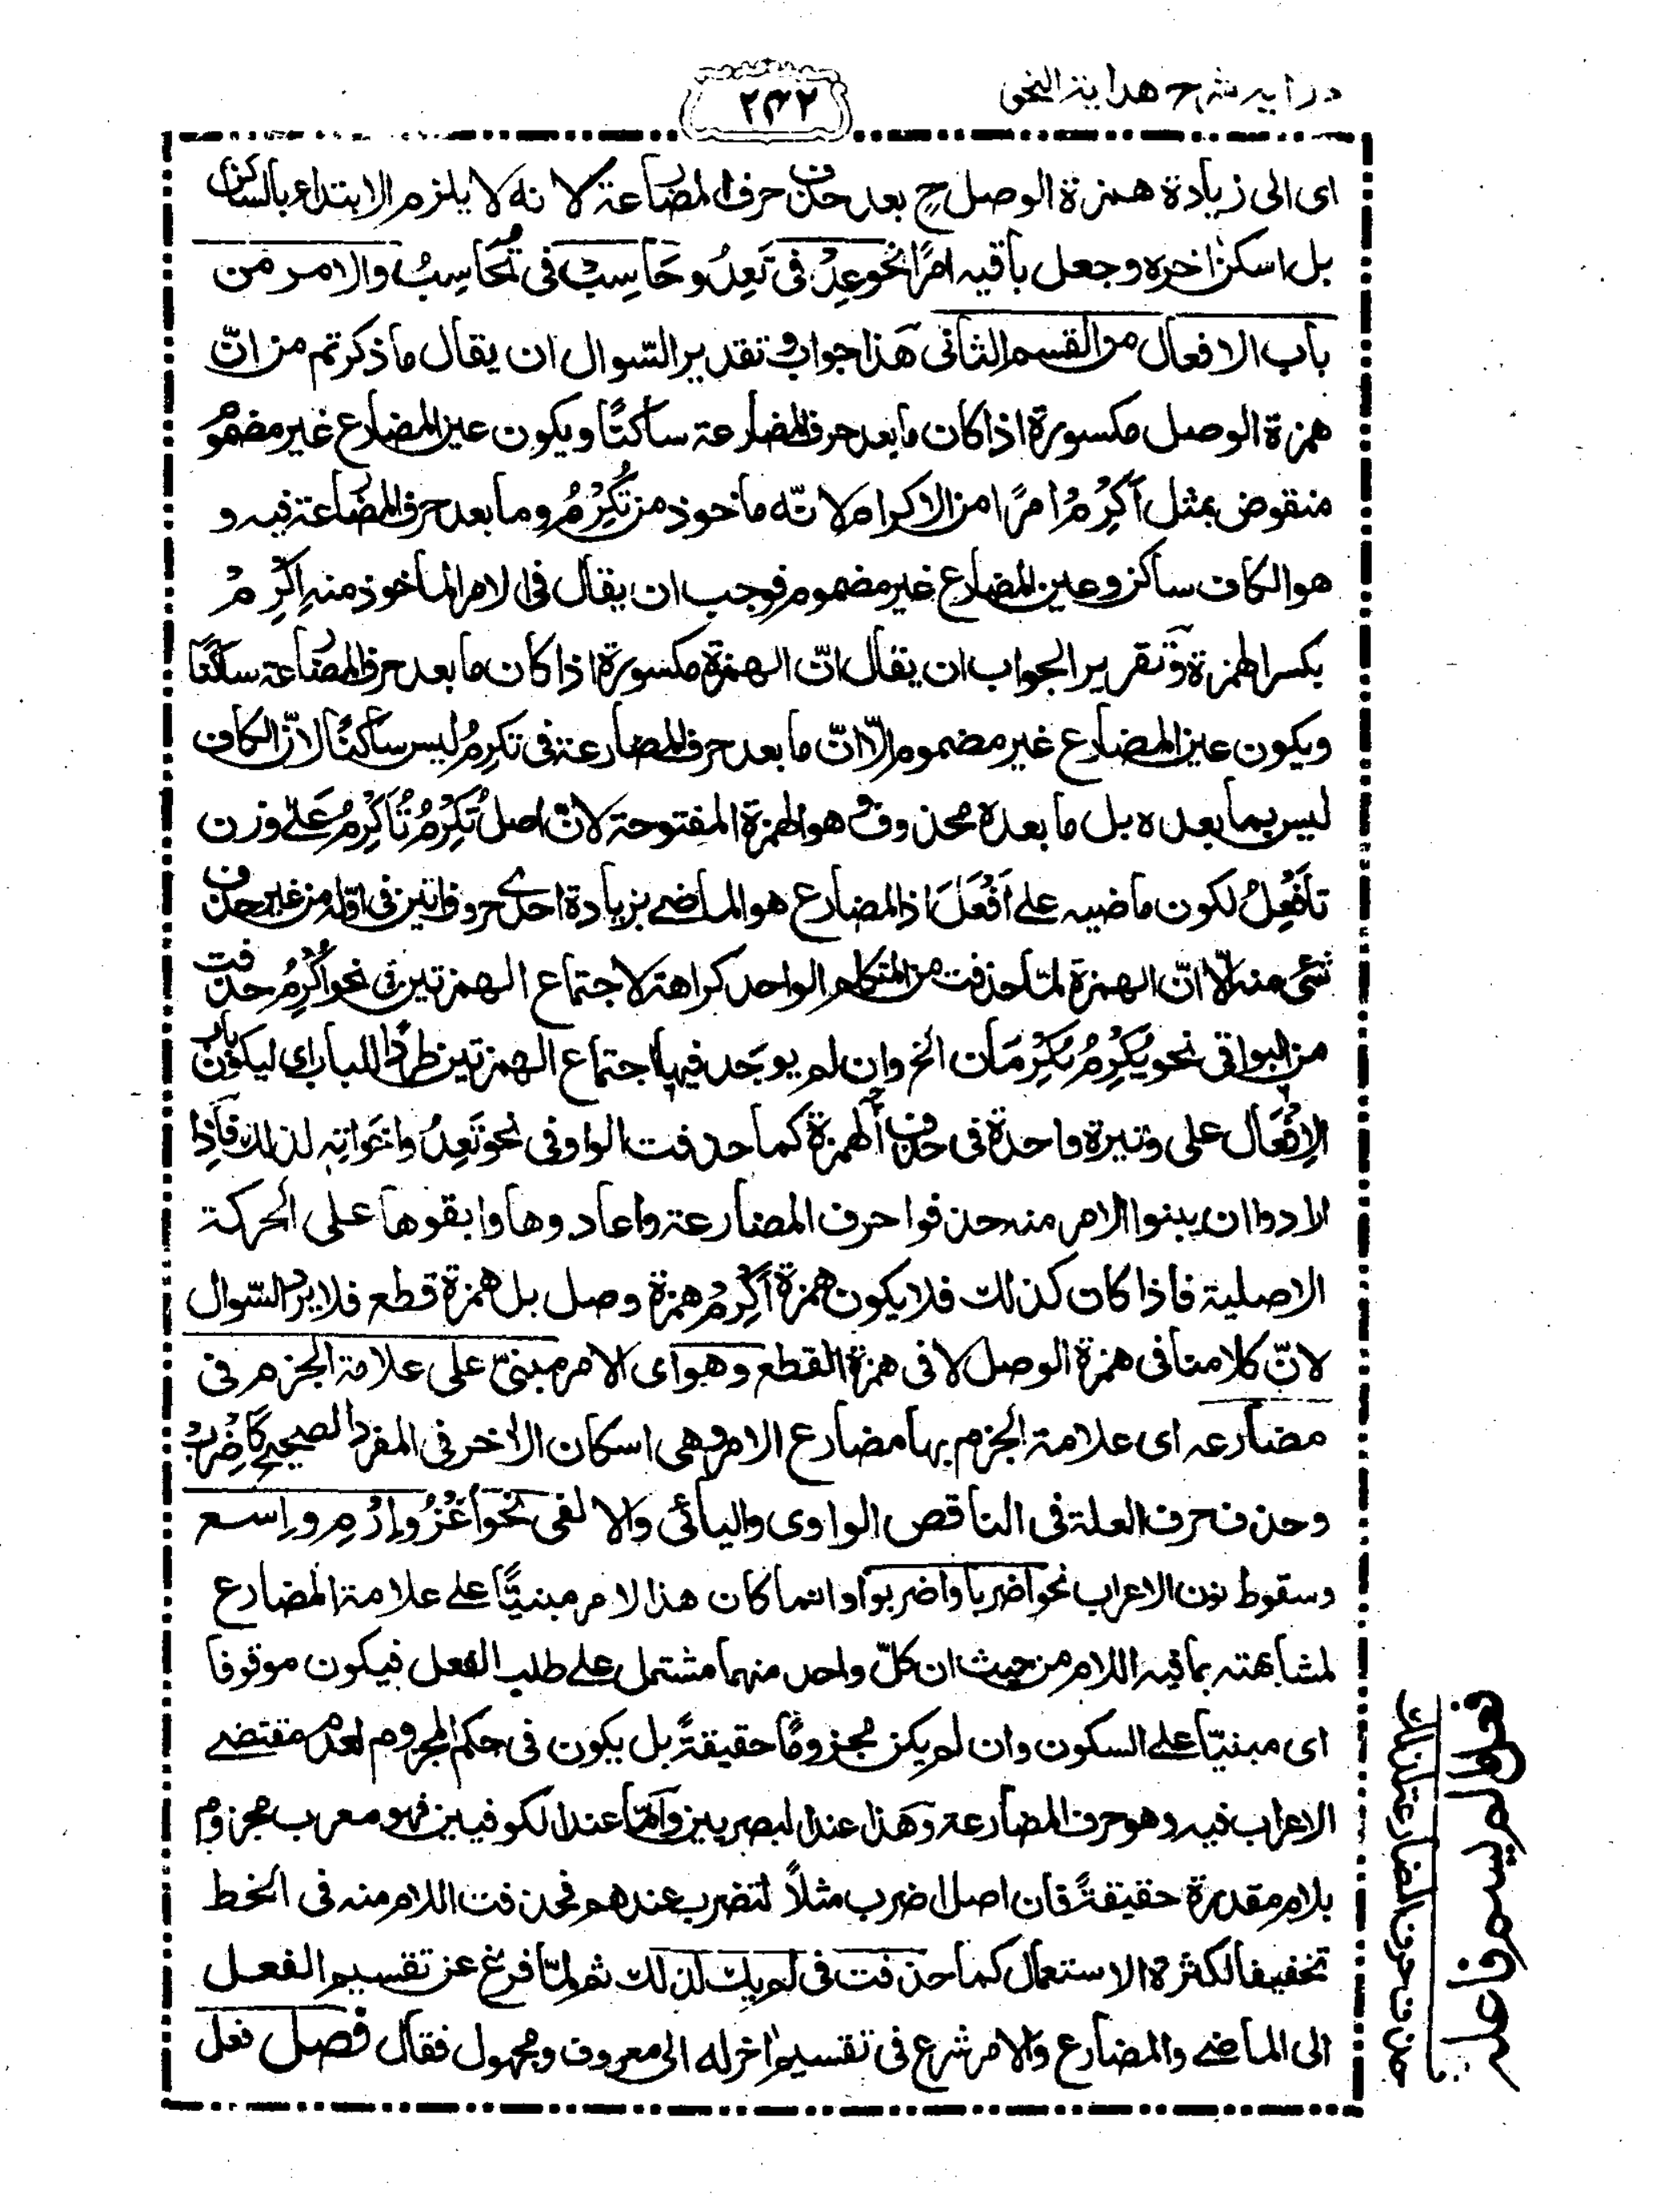 درایہ شرح ھدایۃ النحو
۲۴۲
ای الی زیادة ھمزة الوصل ح بعد حذف حرف المضارعة لانه لا یلزم الابتداء بالساکن
بل اسکن اٰخره وجعل باقیه امرًا نحو عِدْ فی تَعِدُ وحَاسِبْ فی تُحَاسِبُ والامر من
باب الافعال من القسم الثانی ھذا جواب وتقدیر السّوال ان یقال ما ذکرتم من انّ
ھمزة الوصل مکسورة اذا کان ما بعد حرف المضارعة ساکنًا ویکون عین المضارع غیر مضموم
منقوض بمثل اَکْرِمْ امرًا من الاکرام لانّه ماخوذ من تُکْرِمُ وما بعد حرف المضارعة فیه و
ھو الکاف ساکن وعین المضارع غیر مضموم فوجب ان یقال فی الامر الماخوذ منه اِکْرِمْ
بکسر الھمزة وتقریر الجواب ان یقال انّ الھمزة مکسورة اذا کان ما بعد حرف المضارعة ساکنًا
ویکون عین المضارع غیر مضموم الّا انّ ما بعد حرف المضارعة فی تکرِمُ لیس ساکنًا لانّ الکاف
لیس بما بعده بل ما بعده محذوف وھو الھمزة المفتوحة لانّ اصل تُکْرِمُ تُاَکْرِمُ عَلٰی وزن
تُاَفْعِلُ لکون ماضیه علی اَفْعَلَ اذ المضارع ھو الماضی بزیادة احدی حروف اتین فی اوّله من غیر حذف
شئی منه الّا انّ الھمزة لمّا حذفت من المتکلم الواحد کراھة لاجتماع الھمزتین فی نحو اُکْرِمُ حذفت
من البواقی نحو یُکْرِمُ یُکْرِمَان الخ وان لم یوجَد فیھا اجتماع الھمزتین طردًا للباب ای لیکون باب
الاِفْعَال علی وتیرة واحدة فی حذف الھمزة کما حذفت الواو فی نحو تَعِدُ واخواته لذلك فاَذِا
ارادوا ان یبنوا الامر منه حذفوا حرف المضارعة واعادوھا وابقوھا علی الحرکة
الاصلیة فاذا کان کذلك فلا یکون ھمزة اَکْرِمْ ھمزة وصل بل ھمزة قطع فلا یرد السّوال
لانّ کلامنا فی ھمزة الوصل لا فی ھمزة القطع وھو ای الامر مبنیّ علی علامة الجزم فی
مضارعه ای علامة الجزم بھا مضارع الامر وھی اسکان الاٰخر فی المفرد الصحیح کاِضْرِبْ
وحذف حرف العلة فی الناقص الواوی والیائی والالفی نحو اُغْزُ واِرْمِ واِسع
وسقوط نون الاعراب نحو اضربا واضربوا وانما کان ھذا الامر مبنیًّا علی علامة المضارع
لمشابھته بما فیه اللام من حیث ان کلّ واحد منھما مشتمل علی طلب الفعل فیکون موقوفا
ای مبنیّا علی السکون وان لم یکن مجزومًا حقیقةً بل یکون فی حکم المجزوم لعدم مقتضی
الاعراب فیه وھو حرف المضارعة وھذا عند البصریین وامّا عند الکوفیین فھو معرب مجزوم
بلام مقدرة حقیقةً فان اصل اضرب مثلاً لتضرب عندھم فحذفت اللام منه فی الخط
تخفیفا لکثرة الاستعمال کما حذفت فی لم یك لذلك ثم لمّا فرغ عن تقسیم الفعل
الی الماضی والمضارع والامر شرع فی تقسیم اٰخر له الی معروف ومجھول فقال فصل فعل
فعل ما لم یسم فاعله